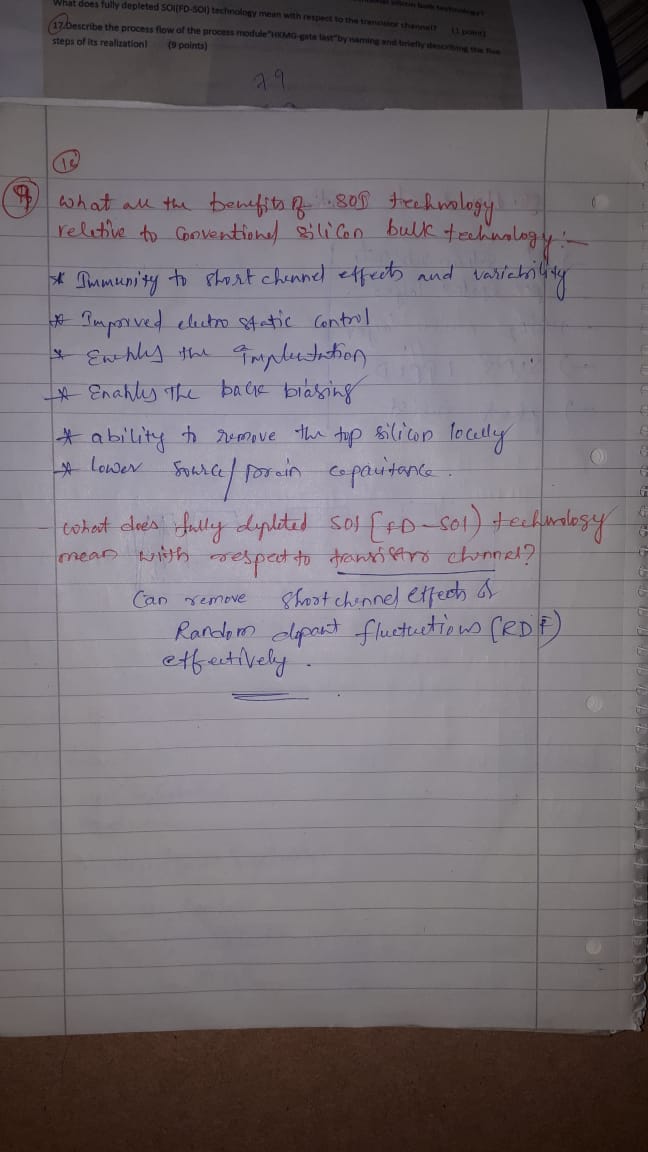 What does fully depleted SOI(FD-SOI) technology mean with respect to the transistor channel? (1 point)
17.Describe the process flow of the process module"HKMG-gate last"by naming and briefly describing the five
steps of its realization! (9 points)
29
16
What are the benefits of SOI technology
reletive to Conventional silicon bulk technology:-
* Immunity to short channel effects and variability
* Improved electro static control
* Enables the
* Enables the back biasing
* ability to remove the top silicon locally
* lower Source/Drain capacitance.
- what does fully depleted SOI (FD-SOI) technology
mean with respect to transistors channel?
Can remove Short channel effects &
Random dopant fluctuations (RDF)
effectively.